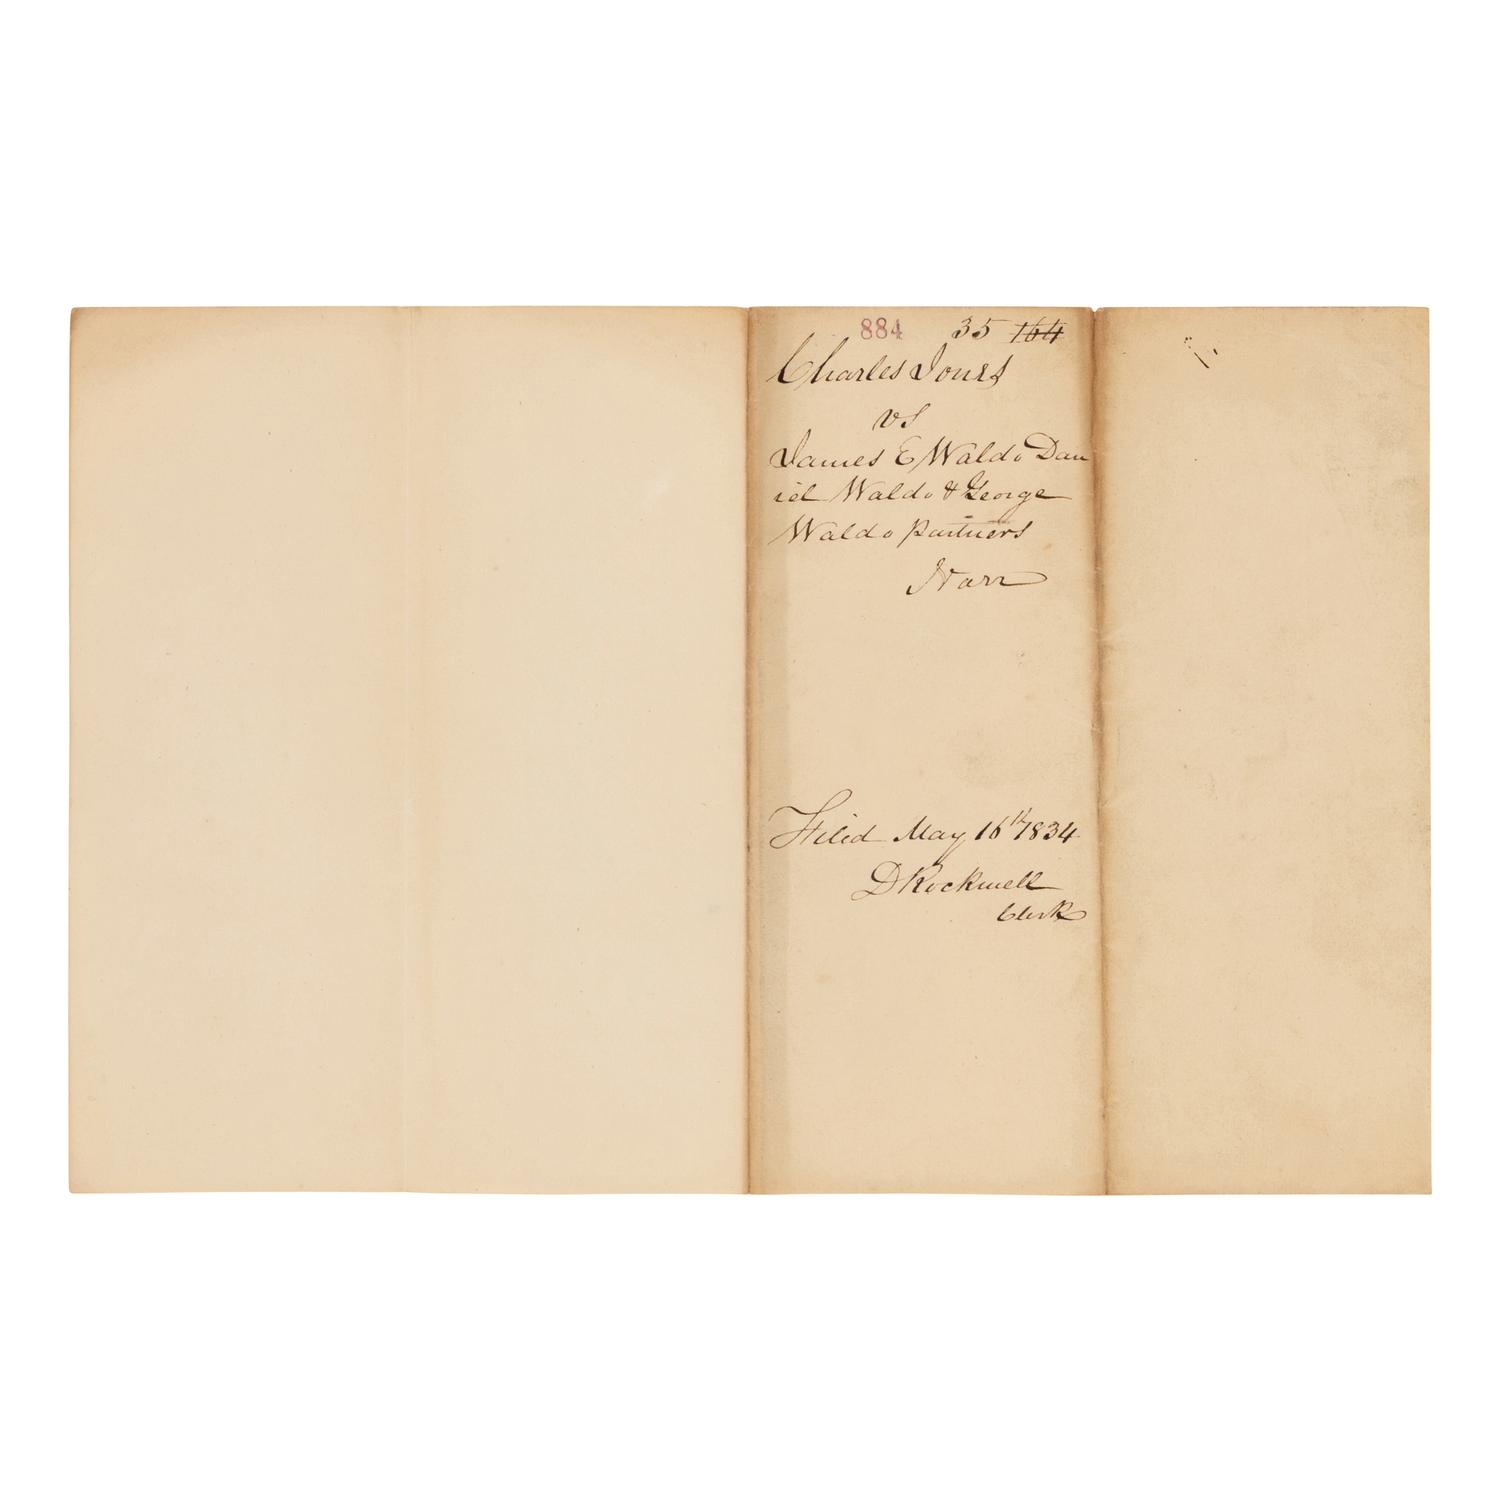 884 35 164
Charles Jones
vs
James E Waldo Dan
iel Waldo & George
Waldo partners
Narr
Filed May 16th 1834
D Rockwell
Clerk